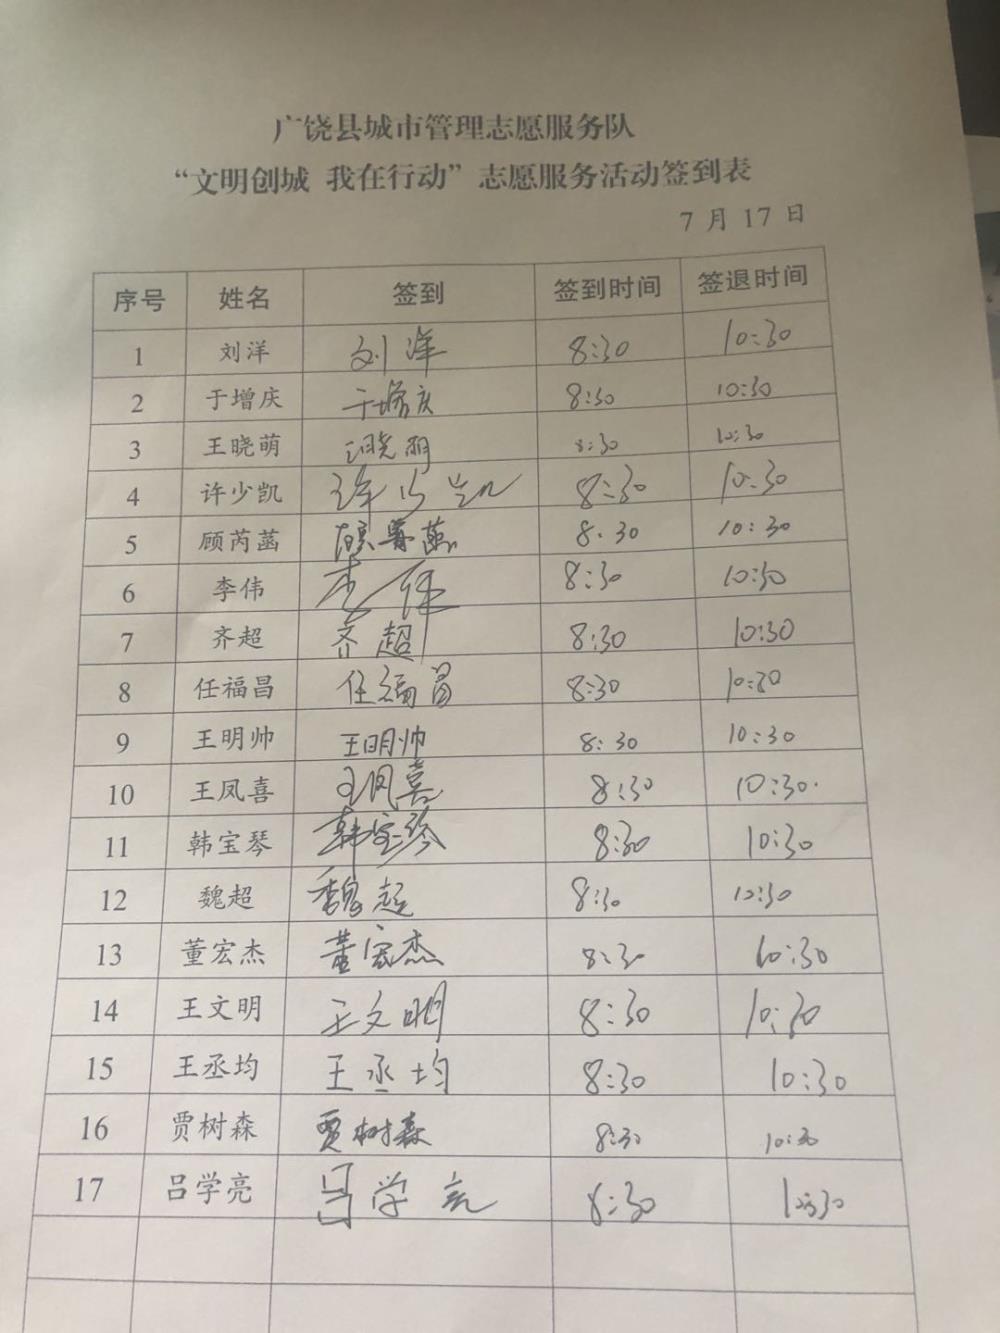 广饶县城市管理志愿服务队
“文明创城 我在行动”志愿服务活动签到表
7 月 17 日
序号 姓名 签到 签到时间 签退时间
1 刘洋 刘洋 8:30 10:30
2 于增庆 于增庆 8:30 10:30
3 王晓萌 王晓萌 8:30 10:30
4 许少凯 许少凯 8:30 10:30
5 顾芮菡 顾芮菡 8:30 10:30
6 李伟 李伟 8:30 10:30
7 齐超 齐超 8:30 10:30
8 任福昌 任福昌 8:30 10:30
9 王明帅 王明帅 8:30 10:30
10 王凤喜 王凤喜 8:30 10:30
11 韩宝琴 韩宝琴 8:30 10:30
12 魏超 魏超 8:30 10:30
13 董宏杰 董宏杰 8:30 10:30
14 王文明 王文明 8:30 10:30
15 王丞均 王丞均 8:30 10:30
16 贾树森 贾树森 8:30 10:30
17 吕学亮 吕学亮 8:30 10:30